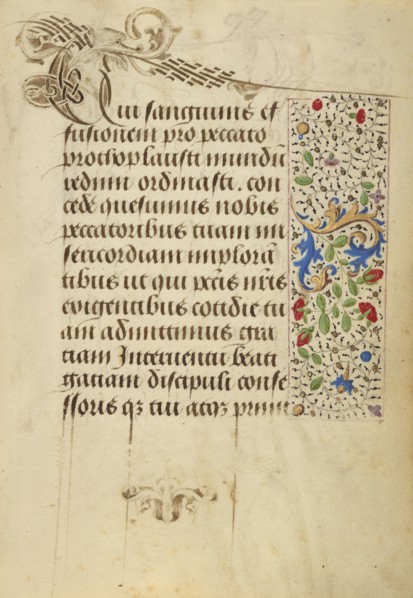 Qui sanguinis ef
fusionem pro peccato
prothoplausti mundū
redimi ordinasti . con
cede quesumus nobis
peccatoribus tuam mi
sericordiam implorā
tibus ut qui pctīs nr̄is
exigentibus cotidie tu
am admittimus gra
tiam Interuentu beati
gatiani discipuli confe
ssoris qz tui atqz primi